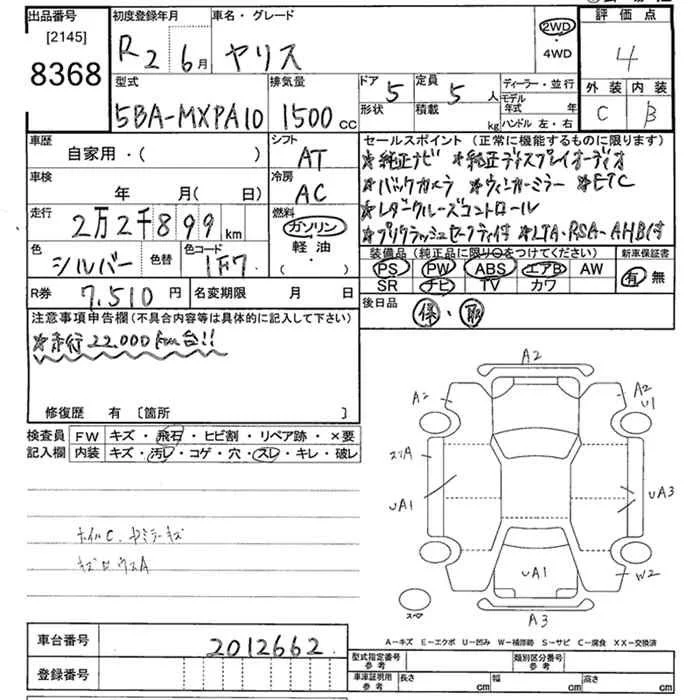 出品番号 初度登録年月 車名・グレード 2WD 評価点
[2145] R2 6月 ヤリス ・ 4
8368 4WD
型式 排気量 ドア 定員 ディーラー・並行 外装 内装
5BA-MXPA10 1500cc 5 5人 モデル年式 年 C B
形状 積載 kg ハンドル 左・右
車歴 シフト セールスポイント (正常に機能するものに限ります)
自家用・( ) AT ☆純正ナビ ☆純正ディスプレイオーディオ
車検 冷房 ☆バックカメラ ☆ウィンカーミラー ☆ETC
年 月(日) AC ☆レダークルーズコントロール
走行 燃料 ☆プリクラッシュセーフティ付 ☆LTA・RSA・AHB付
2万2千899km ガソリン
色 色替 色コード 軽油・ 装備品 (純正品に限り○をつけてください) 新車保証書
シルバー 1F7 ( ・ ) PS PW ABS エアB AW 有 無
SR ナビ TV カワ
R券 7,510円 名変期限 月 日 後日品 保・取
注意事項申告欄 (不具合内容等は具体的に記入して下さい)
☆走行22,000km台!!
修復歴 有 [箇所 ]
検査員 FW キズ・飛石・ヒビ割・リペア跡・×要
記入欄 内装 キズ・汚レ・コゲ・穴・スレ・キレ・破レ
A2
A2
A2
U1
UA1
UA3
UA1
W2
A3
スペア
ホイルC.
A-キズ E-エクボ U-凹み W-補修跡 S-サビ C-腐食 XX-交換済
車台番号 2012662
登録番号
型式指定番号 参考 類別区分番号 参考
車庫証明用 参考 長さ cm 幅 cm 高さ cm